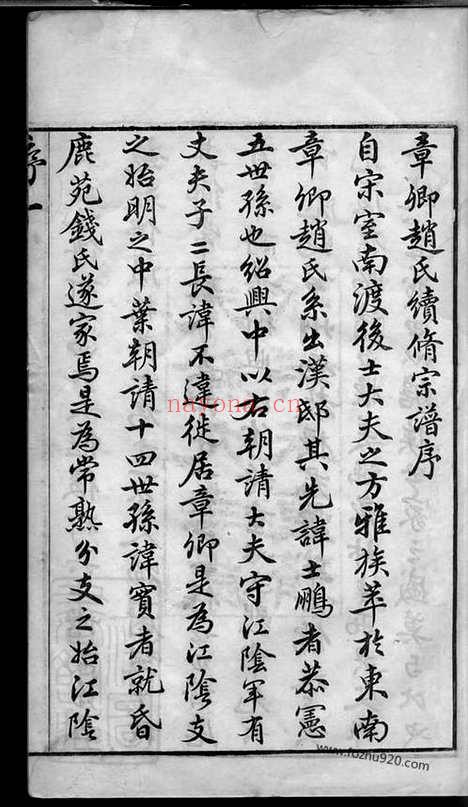 章卿趙氏續脩宗譜序
自宋室南渡後士大夫之方雅族萃於東南
章卿趙氏系出漢邸其先諱士鵬者恭憲
五世孫也紹興中以右朝請大夫守江陰軍有
丈夫子二長諱不違徙居章卿是為江陰支
之始明之中葉朝請十四世孫諱實者就昏
鹿苑錢氏遂家焉是為常熟分支之始江陰
序一
nayona.cn
www.fozhu920.com